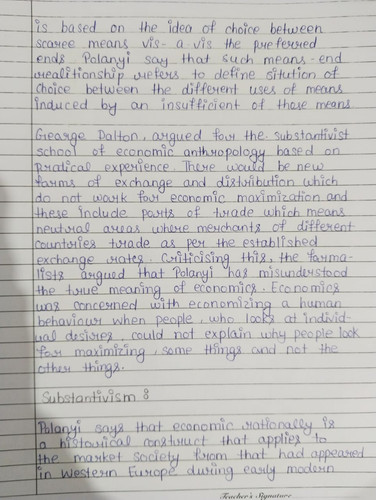 is based on the idea of choice between
scarce means vis-a vis the preferred
ends. Polanyi say that such means-end
realitionship refers to define sitution of
choice between the different uses of means
induced by an insufficient of those means
Gearge Dalton, argued for the substantivist
school of economic anthropology based on
pratical experience. There would be new
forms of exchange and distribution which
do not work for economic maximization and
these include ports of trade which means
neutral areas where merchants of different
countries trade as per the established
exchange rates. Criticising this, the forma-
lists argued that Polanyi has misunderstood
the true meaning of economics. Economics
was concerned with economizing a human
behaviour when people, who looks at individ-
ual desires, could not explain why people look
for maximizing, some things and not the
other things.
Substantivism :
Polanyi says that economic rationally is
a historical construct that applies to
the market society from that had appeared
in Western Europe during early modern
Teacher's Signature